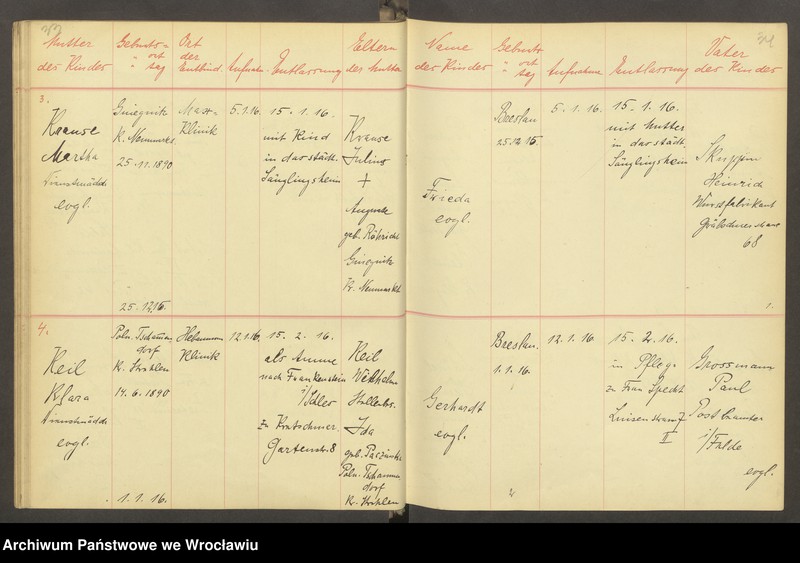 Mutter
der Kinder
Geburts=
" ort
" tag
Ort
der
Entbind.
Aufnahme
Entlassung
Eltern
der Mutter
Name
der Kinder
Geburts
" ort
" tag
Aufnahme
Entlassung
Vater
der Kinder
3.
Krause
Martha
Dienstmädch.
evgl.
K. Neumarkt
25.11.1890
25.12.15.
Klinik
5.1.16.
15.1.16.
mit Kind
in das städt.
Säuglingsheim
Krause
Julius
+
Auguste
geb.
Kr. Neumarkt
Frieda
evgl.
Breslau
25.12.15.
5.1.16.
15.1.16.
mit Mutter
in das städt.
Säuglingsheim
Skuppin
Heinrich
Wurstfabrikant
68
1.
4.
Keil
Klara
Dienstmädch.
evgl.
Poln. Tschammen
dorf
K. Strehlen
14.6.1890
1.1.16.
Hebammen
Klinik
12.1.16.
15.2.16.
als Amme
nach Frankenstein
i/Schles
zu Kretschmer.
Gartenstr. 8
Keil
Wilhelm
Ida
geb.
Poln. Tschammen
dorf
Kr. Strehlen
Gerhardt
evgl.
Breslau.
1.1.16.
12.1.16.
15.2.16.
in Pflege
zu Frau Specht
Luisenstrasse 7
II
Grossmann
Paul
Postbeamter
evgl.
Archiwum Państwowe we Wrocławiu